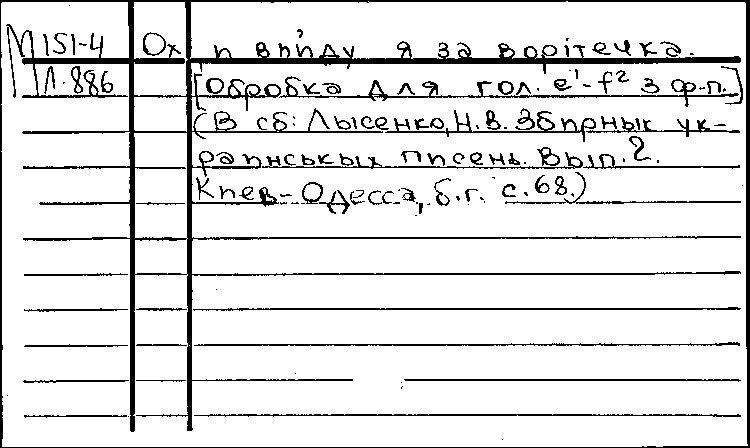 М 151-4 Ох и вийду я за ворітечка.
Л.886 [Обробка для гол. e¹-f² з ф-п.]
(В сб: Лысенко, Н.В. Збирнык ук-
раинськых писень. Вып.2.
Киев-Одесса, б.г. с.68.)